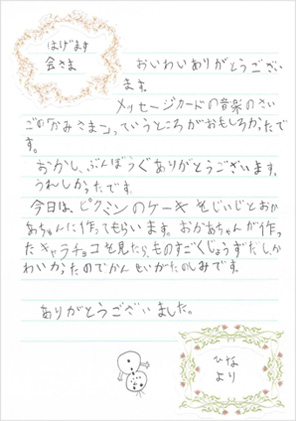 はげます
会さま
おいわいありがとうござい
ます。
メッセージカードの音楽のさい
ごの「かみさまニっていうところがおもしろかったで
す。
おかし、ぶんぼうぐありがとうございます。
うれしかったです。
今日は、ピクミンのケーキをじいじとおか
あちゃんに作ってもらいます。おかあちゃんが作っ
たキャラチョコを見たら、ものすごくじょうずだしか
わいかったのでかんせいがたのしみです。
ありがとうございました。
ひな
より